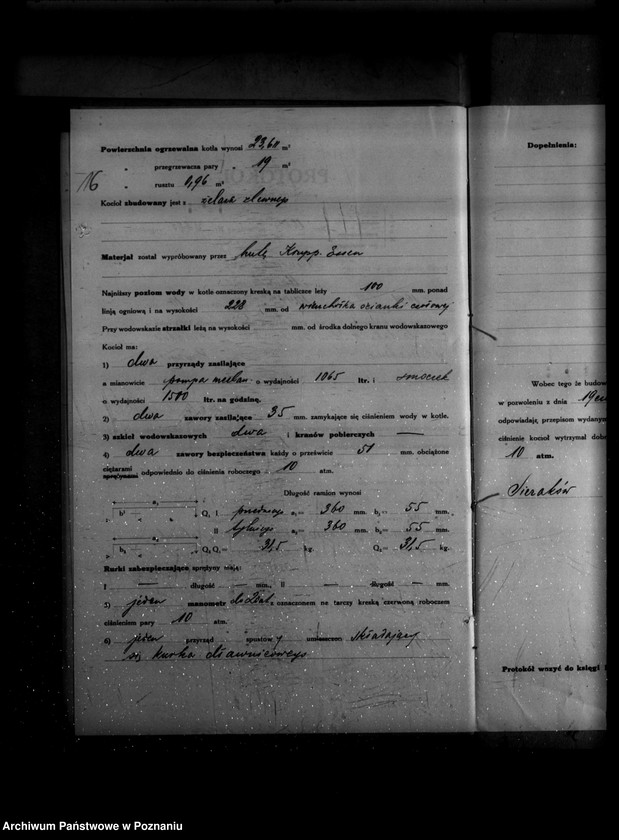 Powierzchnia ogrzewalna kotła wynosi 23,60 m²
„ przegrzewacza pary 19 m²
16
„ rusztu 0,96 m²
Kocioł zbudowany jest z żelaza zlewnego
Materjał został wypróbowany przez hutę Krupp. Essen
Najniższy poziom wody w kotle oznaczony kreską na tabliczce leży 100 mm. ponad
linją ogniową i na wysokości 228 mm. od wierzchołka ścianki czołowej
Przy wodowskazie strzałki leżą na wysokości mm. od środka dolnego kranu wodowskazowego
Kocioł ma:
1) dwa przyrządy zasilające
a mianowicie pompa mechan. o wydajności 1065 ltr. i smoczek
o wydajności 1500 ltr. na godzinę.
2) dwa zawory zasilające 35 mm. zamykające się ciśnieniem wody w kotle.
3) szkieł wodowskazowych dwa i kranów pobierczych —
4) dwa zawory bezpieczeństwa każdy o prześwicie 51 mm. obciążone
ciężarami
sprężynami odpowiednio do ciśnienia roboczego 10 atm.
Długość ramion wynosi
Q₁ I przedniego a₁= 360 mm. b₁= 55 mm.
II tylniego a₂= 360 mm. b₂= 55 mm.
Q₂ Q₁= 31,5 kg. Q₂= 31,5 kg.
Rurki zabezpieczające sprężyny mają:
I — długość — mm., II — długość — mm.
5) jeden manometr do atz oznaczonem na tarczy kreską czerwoną roboczem
ciśnieniem pary 10 atm.
6) jeden przyrząd spustowy umieszczon składający
się kurka dławnicowego
Dopełnienia:
Wobec tego że budow
w pozwoleniu z dnia 19
odpowiadają przepisom wydanym
ciśnienie kocioł wytrzymał dob
10 atm.
Sieraków
Protokół wszyć do księgi
Archiwum Państwowe w Poznaniu